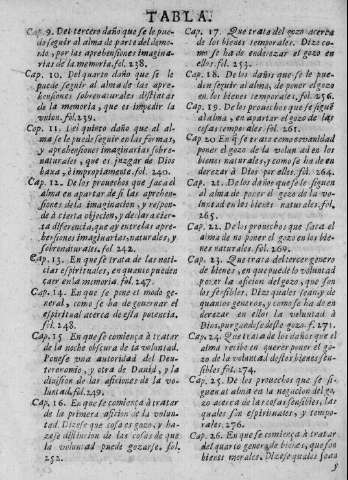 TABLA.
Cap. 9. Del tercero daño que se le pue-
de seguir al alma de parte del demo-
nio, por las aprehensiones imagina-
rias de la memoria. fol. 238.
Cap. 10. Del quarto daño que se le
puede seguir al alma de las apre-
hensiones sobrenaturales distintas
de la memoria, que es impedir la
vnion. fol. 239.
Cap. 11. Del quinto daño que al al-
ma se le puede seguir en las formas,
y aprehensiones imaginarias sobre-
naturales, que es juzgar de Dios
baxa, è impropriamente. fol. 240.
Cap. 12. De los prouechos que saca el
alma en apartar de si las aprehen-
siones de la imaginacion, y respon-
de à cierta objecion, y declara cier-
ta diferencia, que ay entre las apre-
hensiones imaginarias, naturales, y
sobrenaturales. fol. 242.
Cap. 13. En que se trata de las noti-
cias espirituales, en quanto pueden
caer en la memoria. fol. 247.
Cap. 14. En que se pone el modo ge-
neral, como se ha de gouernar el
espiritual acerca de esta potencia.
fol. 248.
Cap. 15. En que se comiença à tratar
de la noche obscura de la voluntad.
Ponese vna autoridad del Deu-
teronomio, y otra de Dauid, y la
diuision de las aficiones de la vo-
luntad. fol. 249.
Cap. 16. En que se comiença à tratar
de la primera aficion de la volun-
tad. Dizese que cosa es gozo, y ha-
zese distincion de las cosas de que
la voluntad puede gozarse. fol.
252.
Cap. 17. Que trata del gozo acerca
de los bienes temporales. Dize co-
mo se ha de enderezar el gozo en
ellos. fol. 253.
Cap. 18. De los daños que se le pue-
den seguir al alma, de poner el gozo
en los bienes temporales. fol. 256.
Cap. 19. De los prouechos que se sigue
al alma, en apartar el gozo de las
cosas temporales. fol. 261.
Cap. 20. En que se trata como es vanidad
poner el gozo de la voluntad en los
bienes naturales, y como se ha de en-
derezar à Dios por ellos. fol. 264.
Cap. 21. De los daños que se le siguen
al alma de poner el gozo de la vo-
luntad en los bienes naturales. fol.
265.
Cap. 22. De los prouechos que saca el
alma de no poner el gozo en los bie-
nes naturales. fol. 269.
Cap. 23. Que trata del tercer genero
de bienes, en que puede la voluntad
poner la aficion del gozo, que son
los sensibles. Dize quales sean, y de
quantos generos, y como se ha de
derezar en ellos la voluntad à
Dios, purgandose deste gozo. f. 271.
Cap. 24. Que trata de los daños que el
alma recibe en querer poner el go-
zo de la voluntad destos bienes sen-
sibles. fol. 274.
Cap. 25. De los prouechos que se si-
guen al alma en la negacion del go-
zo acerca de las cosas sensibles, las
quales son espirituales, y tempo-
rales. 276.
Cap. 26. En que se comiença à tratar
del quarto genero de bienes, que son
bienes morales. Dizese quales sean
y